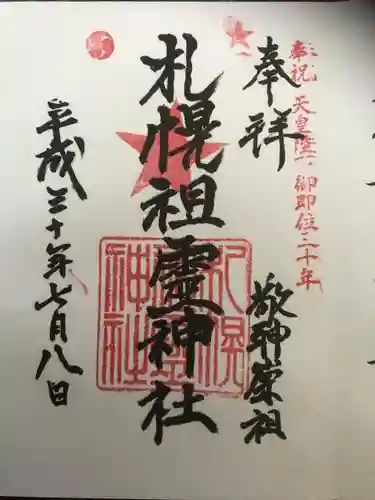 奉祝 天皇陛下御即位三十年
奉拝
敬神崇祖
札幌祖霊神社
札幌祖霊神社
平成三十年七月八日